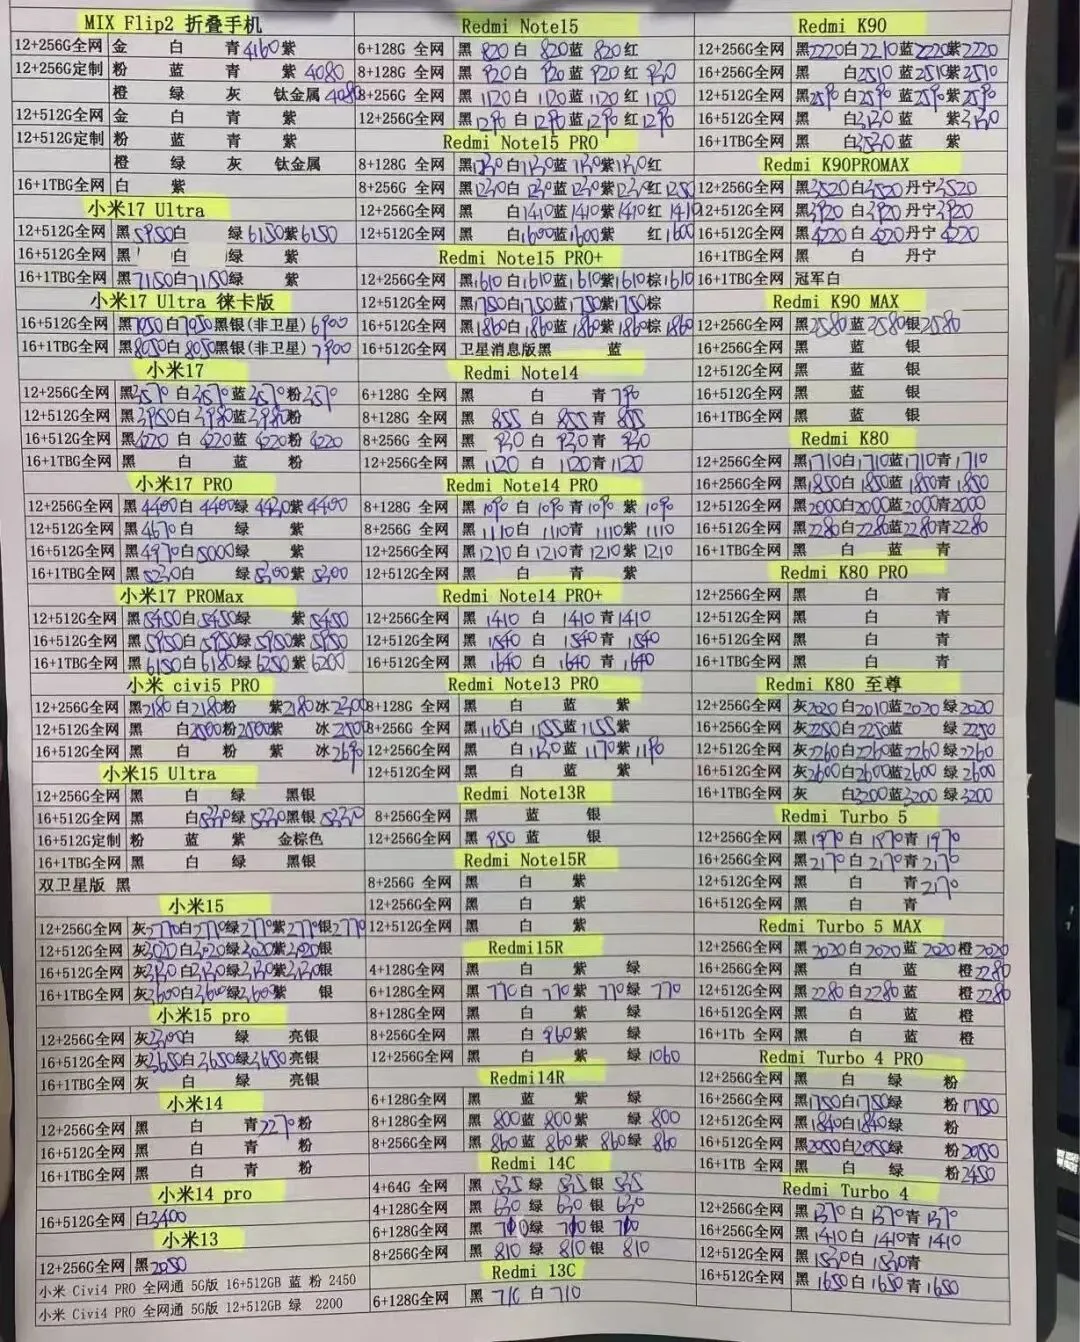 MIX Flip2 折叠手机
12+256G全网 金 白 青4160紫
12+256G定制 粉 蓝 青 紫 4080
橙 绿 灰 钛金属 4080
12+512G全网 金 白 青 紫
12+512G定制 粉 蓝 青 紫
橙 绿 灰 钛金属
16+1TBG全网 白 紫
小米17 Ultra
12+512G全网 黑5950白 绿6150紫6150
16+512G全网 黑 白 绿 紫
16+1TBG全网 黑7150白7150绿 紫
小米17 Ultra 徕卡版
16+512G全网 黑7050白7050黑银(非卫星)6900
16+1TBG全网 黑8050白8050黑银(非卫星)7900
小米17
12+256G全网 黑3570白3570蓝3570粉3570
12+512G全网 黑3950白3980蓝3980粉
16+512G全网 黑4220白4220蓝4220粉4220
16+1TBG全网 黑 白 蓝 粉
小米17 PRO
12+256G全网 黑4400白4400绿4430紫4400
12+512G全网 黑4670白 绿 紫
16+512G全网 黑4970白5000绿 紫
16+1TBG全网 黑5230白 绿5300紫5300
小米17 PROMax
12+512G全网 黑5450白5450绿 紫5450
16+512G全网 黑5950白5950绿5950紫5950
16+1TBG全网 黑6150白6180绿6250紫6200
小米 civi5 PRO
12+256G全网 黑2180白2180粉 紫2180冰2300
12+512G全网 黑 白2500粉2500紫 冰2500
16+512G全网 黑 白 粉 紫 冰2690
小米15 Ultra
12+256G全网 黑 白 绿 黑银
16+512G全网 黑 白5330绿5330黑银5330
16+512G定制 粉 蓝 紫 金棕色
16+1TBG全网 黑 白 绿 黑银
双卫星版 黑
小米15
12+256G全网 灰2770白2770绿2770紫2770银2770
12+512G全网 灰3020白3020绿3020紫3020银
16+512G全网 灰3130白3130绿3130紫3130银
16+1TBG全网 灰3600白3600绿3600紫 银
小米15 pro
12+256G全网 灰3300白 绿 亮银
16+512G全网 灰3650白3650绿3650亮银
16+1TBG全网 灰 白 绿 亮银
小米14
12+256G全网 黑 白 青2270粉
16+512G全网 黑 白 青 粉
16+1TBG全网 黑 白 青 粉
小米14 pro
16+512G全网 白3400
小米13
12+256G全网 黑2050
小米 Civi4 PRO 全网通 5G版 16+512GB 蓝 粉 2450
小米 Civi4 PRO 全网通 5G版 12+512GB 绿 2200
Redmi Note15
6+128G 全网 黑820白820蓝820红
8+128G 全网 黑920白920蓝920红930
8+256G 全网 黑1120白1120蓝1120红1120
12+256G全网 黑1290白1290蓝1290红1290
Redmi Note15 PRO
8+128G 全网 黑1130白1130蓝1130紫1130红
8+256G 全网 黑1230白1230蓝1230紫1230红1250
12+256G全网 黑 白1410蓝1410紫1410红1410
12+512G全网 黑 白1600蓝1600紫 红1600
Redmi Note15 PRO+
12+256G全网 黑1610白1610蓝1610紫1610棕1610
12+512G全网 黑1750白1750蓝1750紫1750棕
16+512G全网 黑1860白1860蓝1860紫1860棕1860
16+512G全网 卫星消息版黑 蓝
Redmi Note14
6+128G 全网 黑 白 青790
8+128G 全网 黑855白855青855
8+256G 全网 黑930白930青930
12+256G全网 黑1120白1120青1120
Redmi Note14 PRO
8+128G 全网 黑1090白1090青1090紫1090
8+256G 全网 黑1110白1110青1110紫1110
12+256G全网 黑1210白1210青1210紫1210
12+512G全网 黑 白 青 紫
Redmi Note14 PRO+
12+256G全网 黑1410白1410青1410
12+512G全网 黑1540白1540青1540
16+512G全网 黑1640白1640青1640
Redmi Note13 PRO
8+128G 全网 黑 白 蓝 紫
8+256G 全网 黑1165白1155蓝1155紫
12+256G全网 黑 白1130蓝1170紫1190
12+512G全网 黑 白 蓝 紫
Redmi Note13R
8+256G 全网 黑 蓝 银
12+256G全网 黑950蓝 银
Redmi Note15R
8+256G 全网 黑 白 紫
12+256G全网 黑 白 紫
12+512G全网 黑 白 紫
Redmi15R
4+128G全网 黑 白 紫 绿
6+128G全网 黑770白770紫770绿770
8+128G全网 黑 白 紫 绿
8+256G全网 黑 白960紫 绿
12+256G全网 黑 白 紫 绿1060
Redmi14R
6+128G全网 黑 蓝 紫 绿
8+128G全网 黑800蓝800紫 绿800
8+256G全网 黑860蓝860紫860绿860
Redmi 14C
4+64G 全网 黑535绿535银535
4+128G全网 黑630绿630银630
6+128G全网 黑710绿710银710
8+256G全网 黑810绿810银810
Redmi 13C
6+128G全网 黑710白710
Redmi K90
12+256G全网 黑2220白2210蓝2220紫2220
16+256G全网 黑 白2510蓝2510紫2510
12+512G全网 黑2590白2590蓝2590紫2590
16+512G全网 黑 白3130蓝 紫3130
16+1TBG全网 黑 白3530蓝 紫
Redmi K90PROMAX
12+256G全网 黑3520白3520丹宁3520
12+512G全网 黑3920白3920丹宁3920
16+512G全网 黑4220白4220丹宁4220
16+1TBG全网 黑 白 丹宁
16+1TBG全网 冠军白
Redmi K90 MAX
12+256G全网 黑2580蓝2580银2580
16+256G全网 黑 蓝 银
12+512G全网 黑 蓝 银
16+512G全网 黑 蓝 银
16+1TBG全网 黑 蓝 银
Redmi K80
12+256G全网 黑1710白1710蓝1710青1710
16+256G全网 黑1850白1850蓝1850青1850
12+512G全网 黑2000白2000蓝2000青2000
16+512G全网 黑2280白2280蓝2280青2280
16+1TBG全网 黑 白 蓝 青
Redmi K80 PRO
12+256G全网 黑 白 青
12+512G全网 黑 白 青
16+512G全网 黑 白 青
16+1TBG全网 黑 白 青
Redmi K80 至尊
12+256G全网 灰2020白2010蓝2020绿2020
16+256G全网 灰2250白2250蓝 绿2250
12+512G全网 灰2260白2260蓝2260绿2260
16+512G全网 灰2600白2600蓝2600绿2600
16+1TBG全网 灰 白3200蓝3200绿3200
Redmi Turbo 5
12+256G全网 黑1970白1970青1970
16+256G全网 黑2170白2170青2170
12+512G全网 黑 白 青2170
16+512G全网 黑 白 青
Redmi Turbo 5 MAX
12+256G全网 黑2020白2020蓝2020橙2020
16+256G全网 黑 白 蓝 橙2280
12+512G全网 黑2280白2280蓝 橙2280
16+512G全网 黑 白 蓝 橙
16+1Tb 全网 黑 白 蓝 橙
Redmi Turbo 4 PRO
12+256G全网 黑 白 绿 粉
16+256G全网 黑1750白1750绿 粉1750
12+512G全网 黑1840白1840绿 粉
16+512G全网 黑2050白2050绿 粉2050
16+1TB 全网 黑 白 绿 粉2450
Redmi Turbo 4
12+256G全网 黑1370白1370青1370
16+256G全网 黑1410白1410青1410
12+512G全网 黑1530白1530青
16+512G全网 黑1650白1650青1650